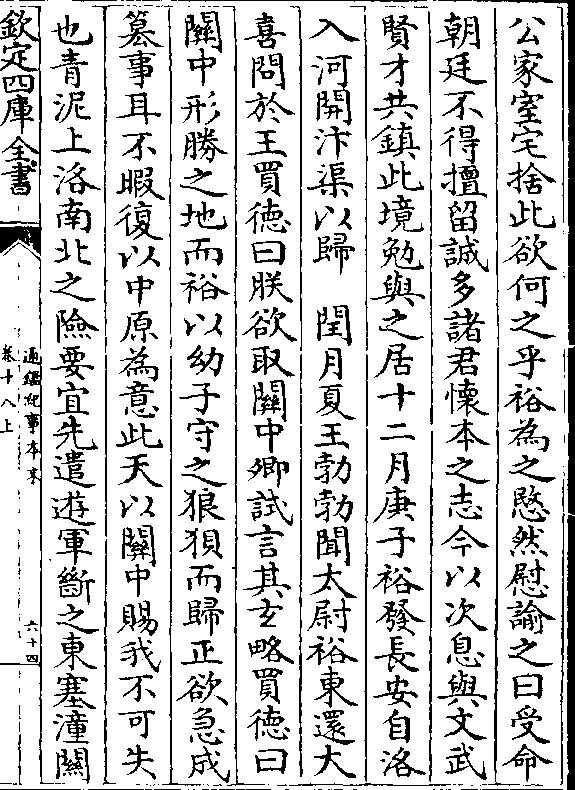 公家室宅捨此欲何之乎裕為之愍然慰諭之曰受命
朝廷不得擅留誠多諸君懷本之志今以次息與文武
賢才共鎮此境勉與之居十二月庚子裕發長安自洛
入河開汴渠以歸　閏月夏王勃勃聞太尉裕東還大
喜問於王買德曰朕欲取關中卿試言其玄略買德曰
關中形勝之地而裕以幼子守之狼狽而歸正欲急成
簒事耳不暇復以中原為意此天以關中賜我不可失
也青泥上洛南北之險要宜先遣遊軍斷之東塞潼關
欽定四庫全書
通鑑紀事本末
卷十八上
六十四